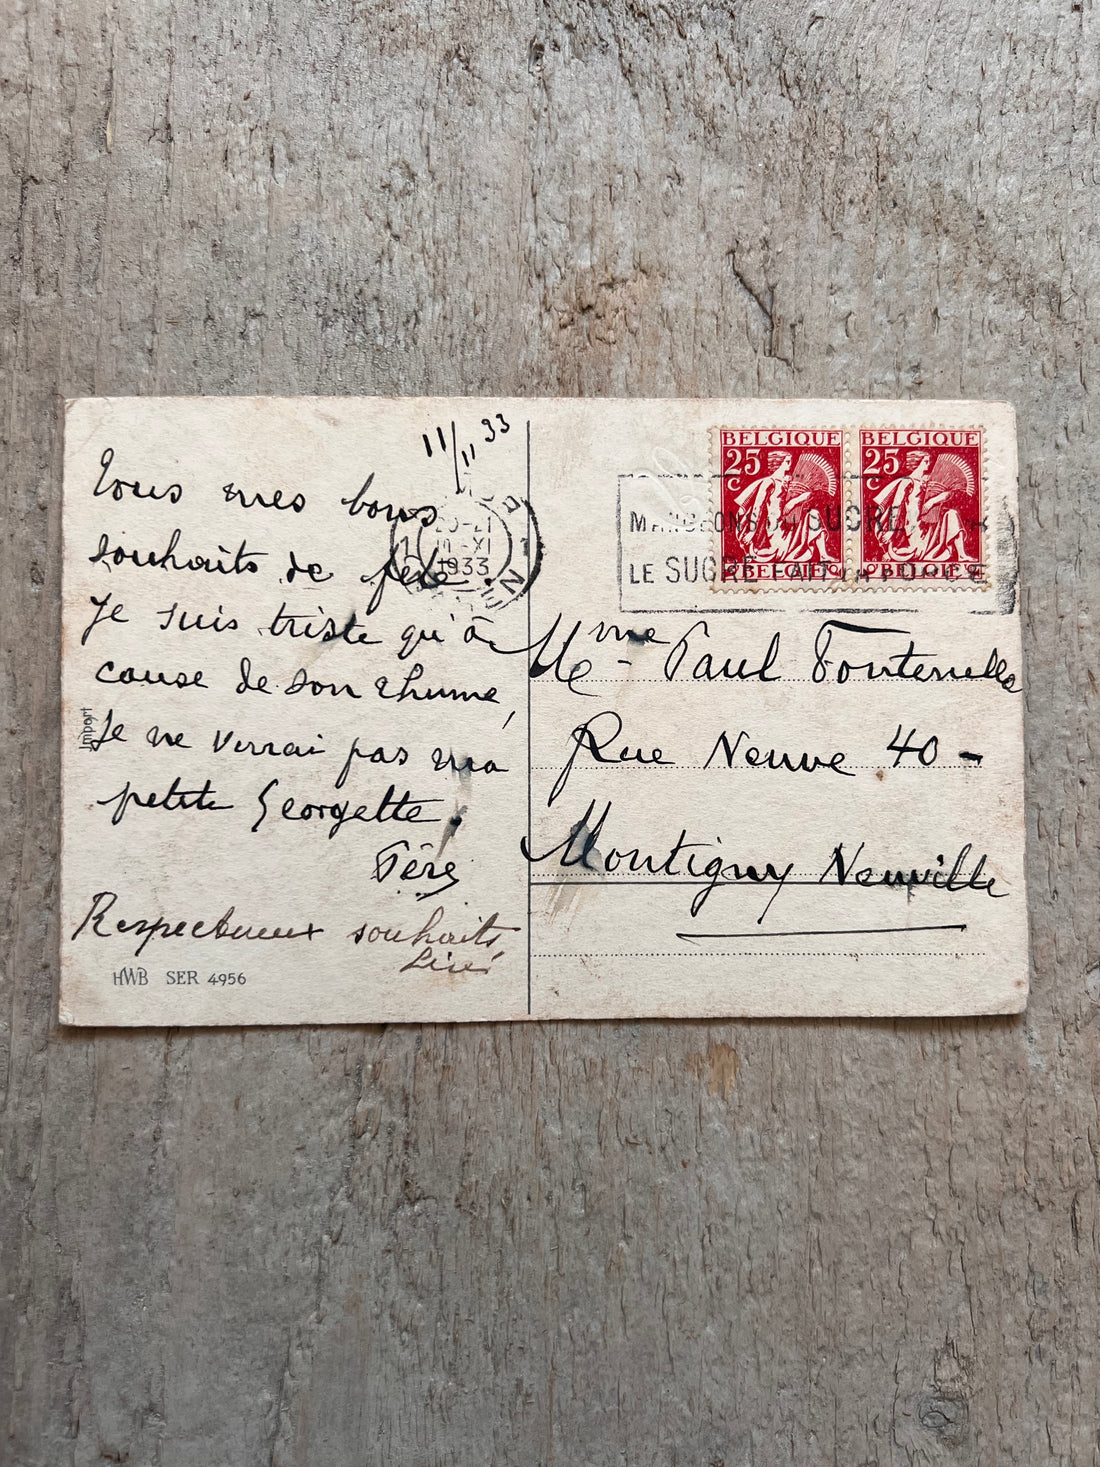 11/11 33
Tous mes bons
souhaits de fête
Je suis triste qu'à
cause de son rhume,
Je ne verrai pas ma
petite Georgette.
Respectueux souhaits
Import
HWB SER 4956
1933
BELGIQUE BELGIQUE
25 25
C C
MANGEONS DU SUCRE
LE SUCRE FAIT
BELGIE BELGIE
Mme Paul Fontenelle
Rue Neuve 40 -
Montigny Neuville